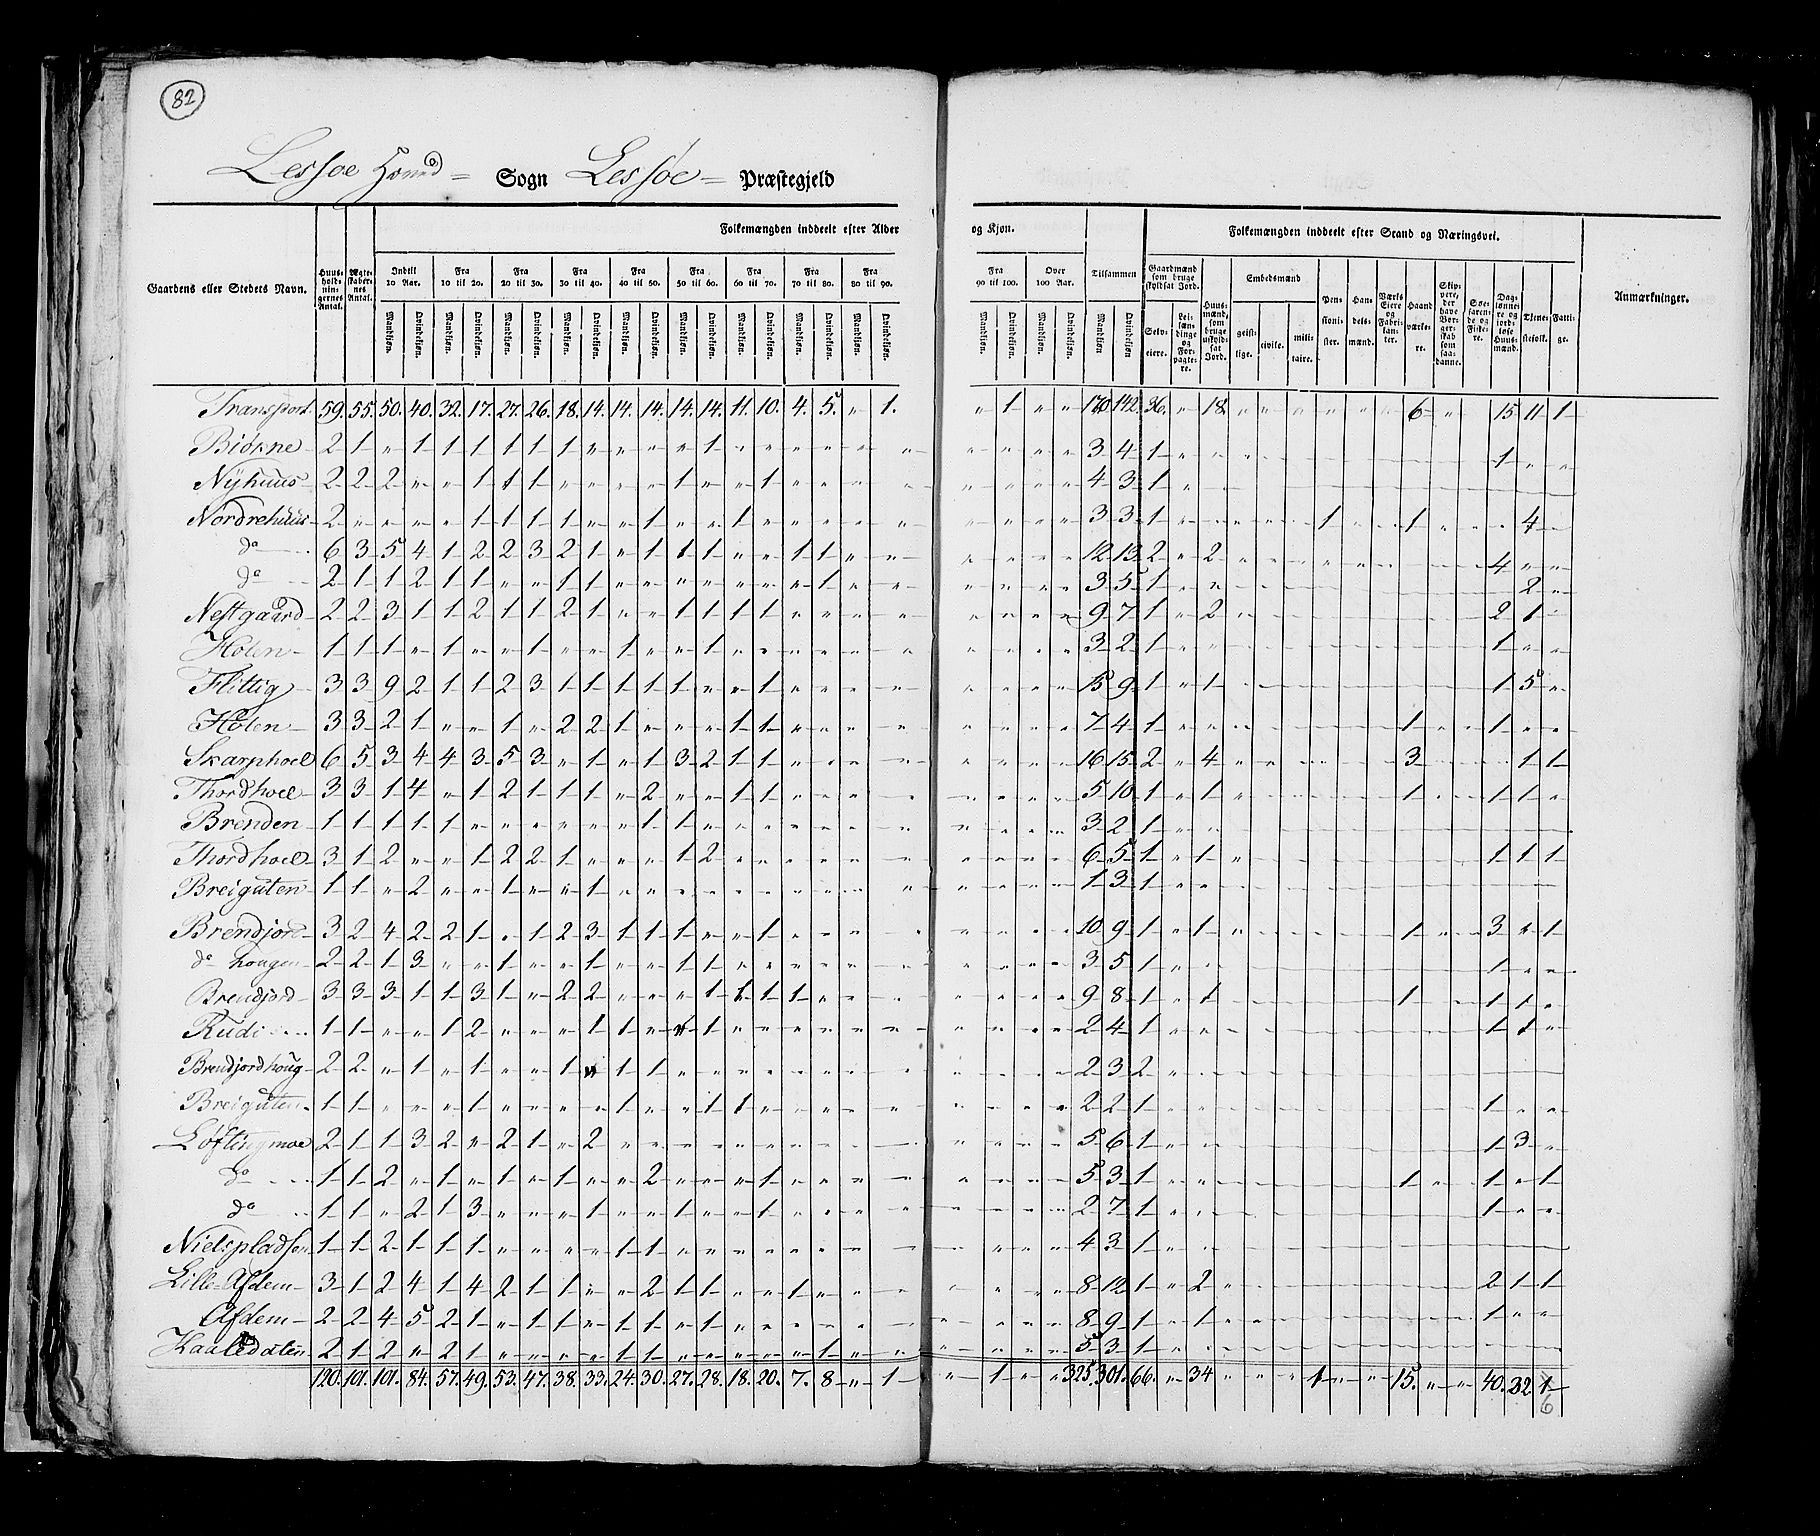 82
Lessoe Hoved Sogn Lessøe Præstegjeld
Folkemængden inddeelt efter Alder og Kjøn. Folkemængden inddeelt efter Stand og Næringsvei.
Gaardens eller Stedets Navn. Huusholdningernes Antal. Ægteskabernes Antal. Indtil 10 Aar. Fra 10 til 20. Fra 20 til 30. Fra 30 til 40. Fra 40 til 50. Fra 50 til 60. Fra 60 til 70. Fra 70 til 80. Fra 80 til 90. Fra 90 til 100. Over 100 Aar. Tilsammen Gaardmænd som bruge skyldsat Jord. Huusmænd, som bruge uskyldsat Jord. Embedsmænd Pensionister. Handelsmænd. Værks Eiere og Fabrikanter. Haandværkere. Skippere, der have Borgerskab som saadanne. Søefarende og Fiskere. Daglønnere og jordløse Huusmænd. Tjenestefolk. Fattige. Anmærkninger.
Mandkiøn. Qvindekiøn. Mandkiøn. Qvindekiøn. Mandkiøn. Qvindekiøn. Mandkiøn. Qvindekiøn. Mandkiøn. Qvindekiøn. Mandkiøn. Qvindekiøn. Mandkiøn. Qvindekiøn. Mandkiøn. Qvindekiøn. Mandkiøn. Qvindekiøn. Mandkiøn. Qvindekiøn. Mandkiøn. Qvindekiøn. Mandkiøn Qvindekiøn. Selveiere. Leilændinge og Forpagtere. geistlige. civile. militaire.
Transport 59. 55. 50. 40. 32. 17. 27. 26. 18. 14. 14. 14. 14. 14. 11. 10. 4. 5. " 1. " 1 " " 170 142. 36. " 18 " " " " " " 6 " " 15 11 1
Biorne 2 1 " 1 1 1 1 1 1 " " " " 1 " " " " " " " " " " 3 4 1 " " 1 " "
Nÿhuus 2 2 2 " " 1 1 1 " " " " 1 " " 1 " " " " " " " " 4 3 1 "
Nordrehuus 2 " " " " 1 1 1 1 " " 1 " " 1 " " " " " " " " " 3 3 1 " " 1 1 4
do 6 3 5 4 1 2 2 3 2 1 " 1 1 1 " " 1 1 " " " " " " 12 13 2 " 2 4 " "
do 2 1 1 2 1 1 " " 1 1 " " " " " " " 1 " " " " " " 3 5 1 " " 2 "
Nestgaard 2 2 3 1 1 2 1 1 2 1 " " 1 1 1 1 " " " " " " " " 9 7 1 " 2 2 1
Holen 1 1 1 " 1 " " 1 " " 1 " " 1 " " " " " " " " " " 3 2 1 " " 1 " "
Flittig 3 3 9 2 1 1 2 3 1 1 1 1 1 " " 1 " " " " " " " " 15 9 1 " 1 1 5 "
Holen 3 3 2 1 " " 1 " 2 2 1 " " " 1 1 " " " " " " " " 7 4 1 " " 1 1 " "
Skarphoel 6 5 3 4 4 3 5 3 " 1 " 1 3 2 1 1 " " " " " " " " 16 15 2 " 4 3 1 1
Thordhoel 3 3 1 4 " 1 2 1 1 1 " 2 " " 1 1 " " " " " " " " 5 10 1 " 1 1 1 1 "
Brenden 1 1 1 1 1 " " " " " " 1 1 " " " " " " " " " " " 3 2 1 " "
Thordhoel 3 1 2 " " 1 2 2 1 " " " 1 2 " " " " " " " " " " 6 5 1 " 1 1 1 1
Breiguten 1 1 " 2 " " 1 " " 1 " " " " " " " " " " " " " " 1 3 1 " "
Brendjord 3 2 4 2 2 1 " 1 2 3 1 1 1 " " 1 " " " " " " " " 10 9 1 " 1 1 3 " 1
do hougen 2 2 1 3 " " 1 " " 1 " " 1 1 " " " " " " " " " " 3 5 1 " " 1 " "
Brendjord 3 3 3 1 1 3 1 " 2 2 " " " 1 1 1 1 " " " " " " " 9 8 1 " 1 1 1 1 "
Rudi 1 1 " " 1 2 " " 1 1 " " 1 " " " " " " " " " " 2 4 1 " " 1 1 "
Brendjordhoug 2 2 " 1 " 1 " " 1 " 1 1 " " " " " " " " " " " " 2 3 2 " "
Breiguten 1 1 " " " 1 " " " " 1 " " 1 1 " " " " " " " " " 2 2 1 " " 1 " "
Löftingmoe 2 1 1 3 2 " 2 1 " 2 " " " " " " " " " " " " " " 5 6 1 " " 1 3 "
do 1 1 2 " 1 " 1 " 1 " " 2 " " " 1 " " " " " " " " 5 3 1 " " 1 1 " 1
do 1 1 " 2 1 3 " " " 1 " " 1 " " 1 " " " " " " " " 2 7 1 " " 1 " "
Nielspladsen 1 1 2 1 1 1 " " " " 1 1 " " " " " " " " " " " " 4 3 1 " "
Lille Afdem 3 1 2 4 1 4 2 1 1 " " 2 1 1 " " 1 " " " " " " " 8 12 1 " 2 2 1 1
Afdem 2 2 4 5 2 1 " 1 1 " 1 1 " 1 " " " " " " " " " " 8 9 1 " 1 1 " "
Kaaledalen 2 1 2 " 2 1 " " " " 1 1 " " " " " 1 " " " " " " 5 3 1 " "
120. 101. 101. 84. 57. 49. 53. 47. 38. 33. 24. 30. 27. 28. 18. 20. 7. 8 " 1 " 1 " " 325. 301. 66. " 34 " " " 1 " " 15. " " 40. 32 1
6